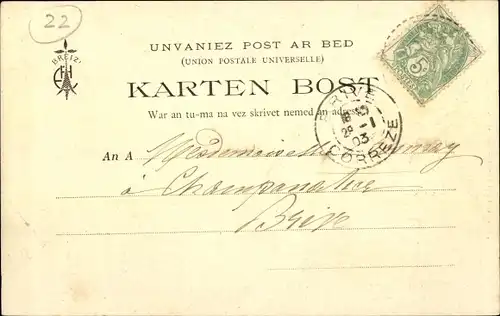 22
BREIZ
UNVANIEZ POST AR BED
(UNION POSTALE UNIVERSELLE)
KARTEN BOST
War an tu-ma na vez skrivet nemed an adress
BRIVE
29 -1
03
CORREZE
5
An A Mademoiselle
à Champanatier
Brive